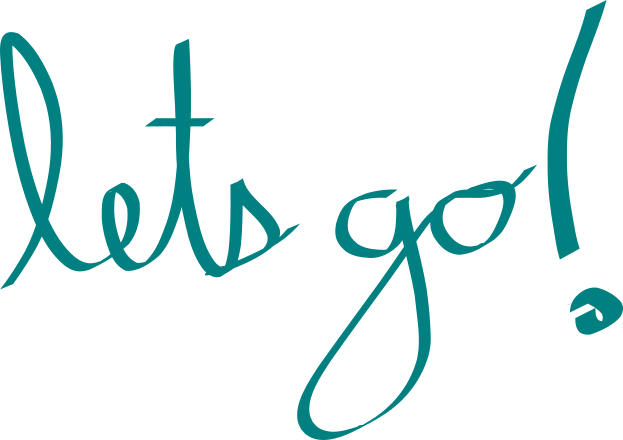 lets go!